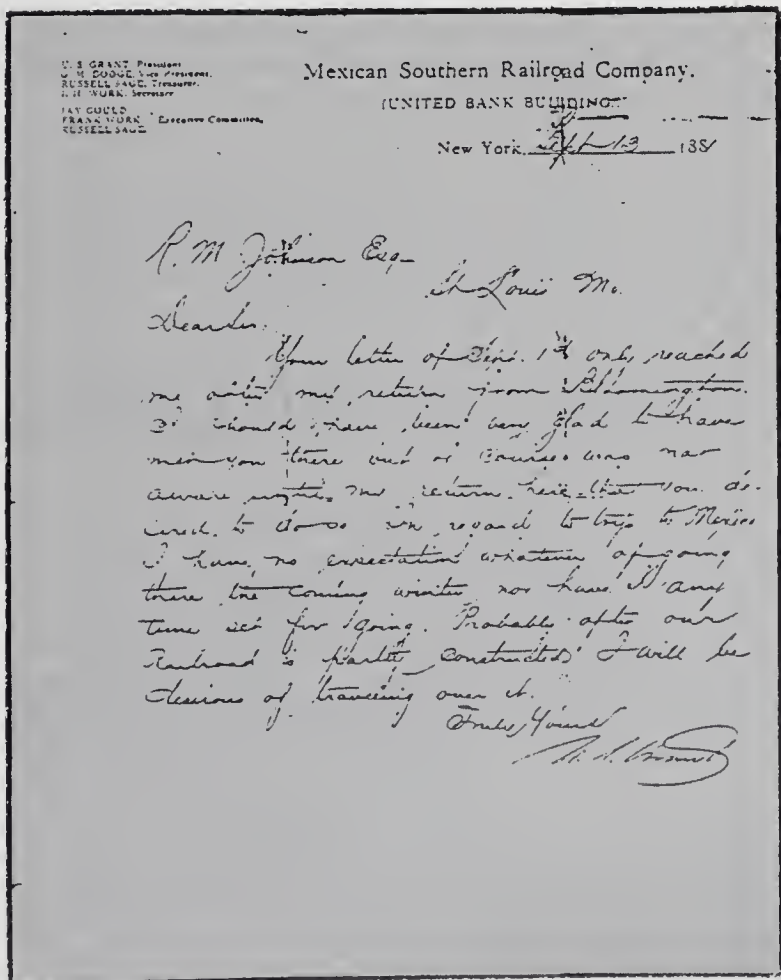 U. S. GRANT, President
G. M. DODGE, Vice President.
RUSSELL SAGE, Treasurer.
J. H. WORK, Secretary
JAY GOULD
FRANK WORK Executive Committee,
RUSSELL SAGE
Mexican Southern Railroad Company.
(UNITED BANK BUILDING)
New York, Sept 13 1881
R. M Johnson Esq
St Louis Mo.
Dear Sir:
Your letter of Sept. 1st only reached
me after my return from Bloomington.
I should have been very glad to have
seen you there but of course was not
aware until my return here that you de-
sired to do so. In regard to trip to Mexico
I have no expectation whatever of going
there the coming winter nor have I any
time set for going. Probably after our
Railroad is partly constructed I will be
desirous of traveling over it.
Truly Yours
U. S. Grant